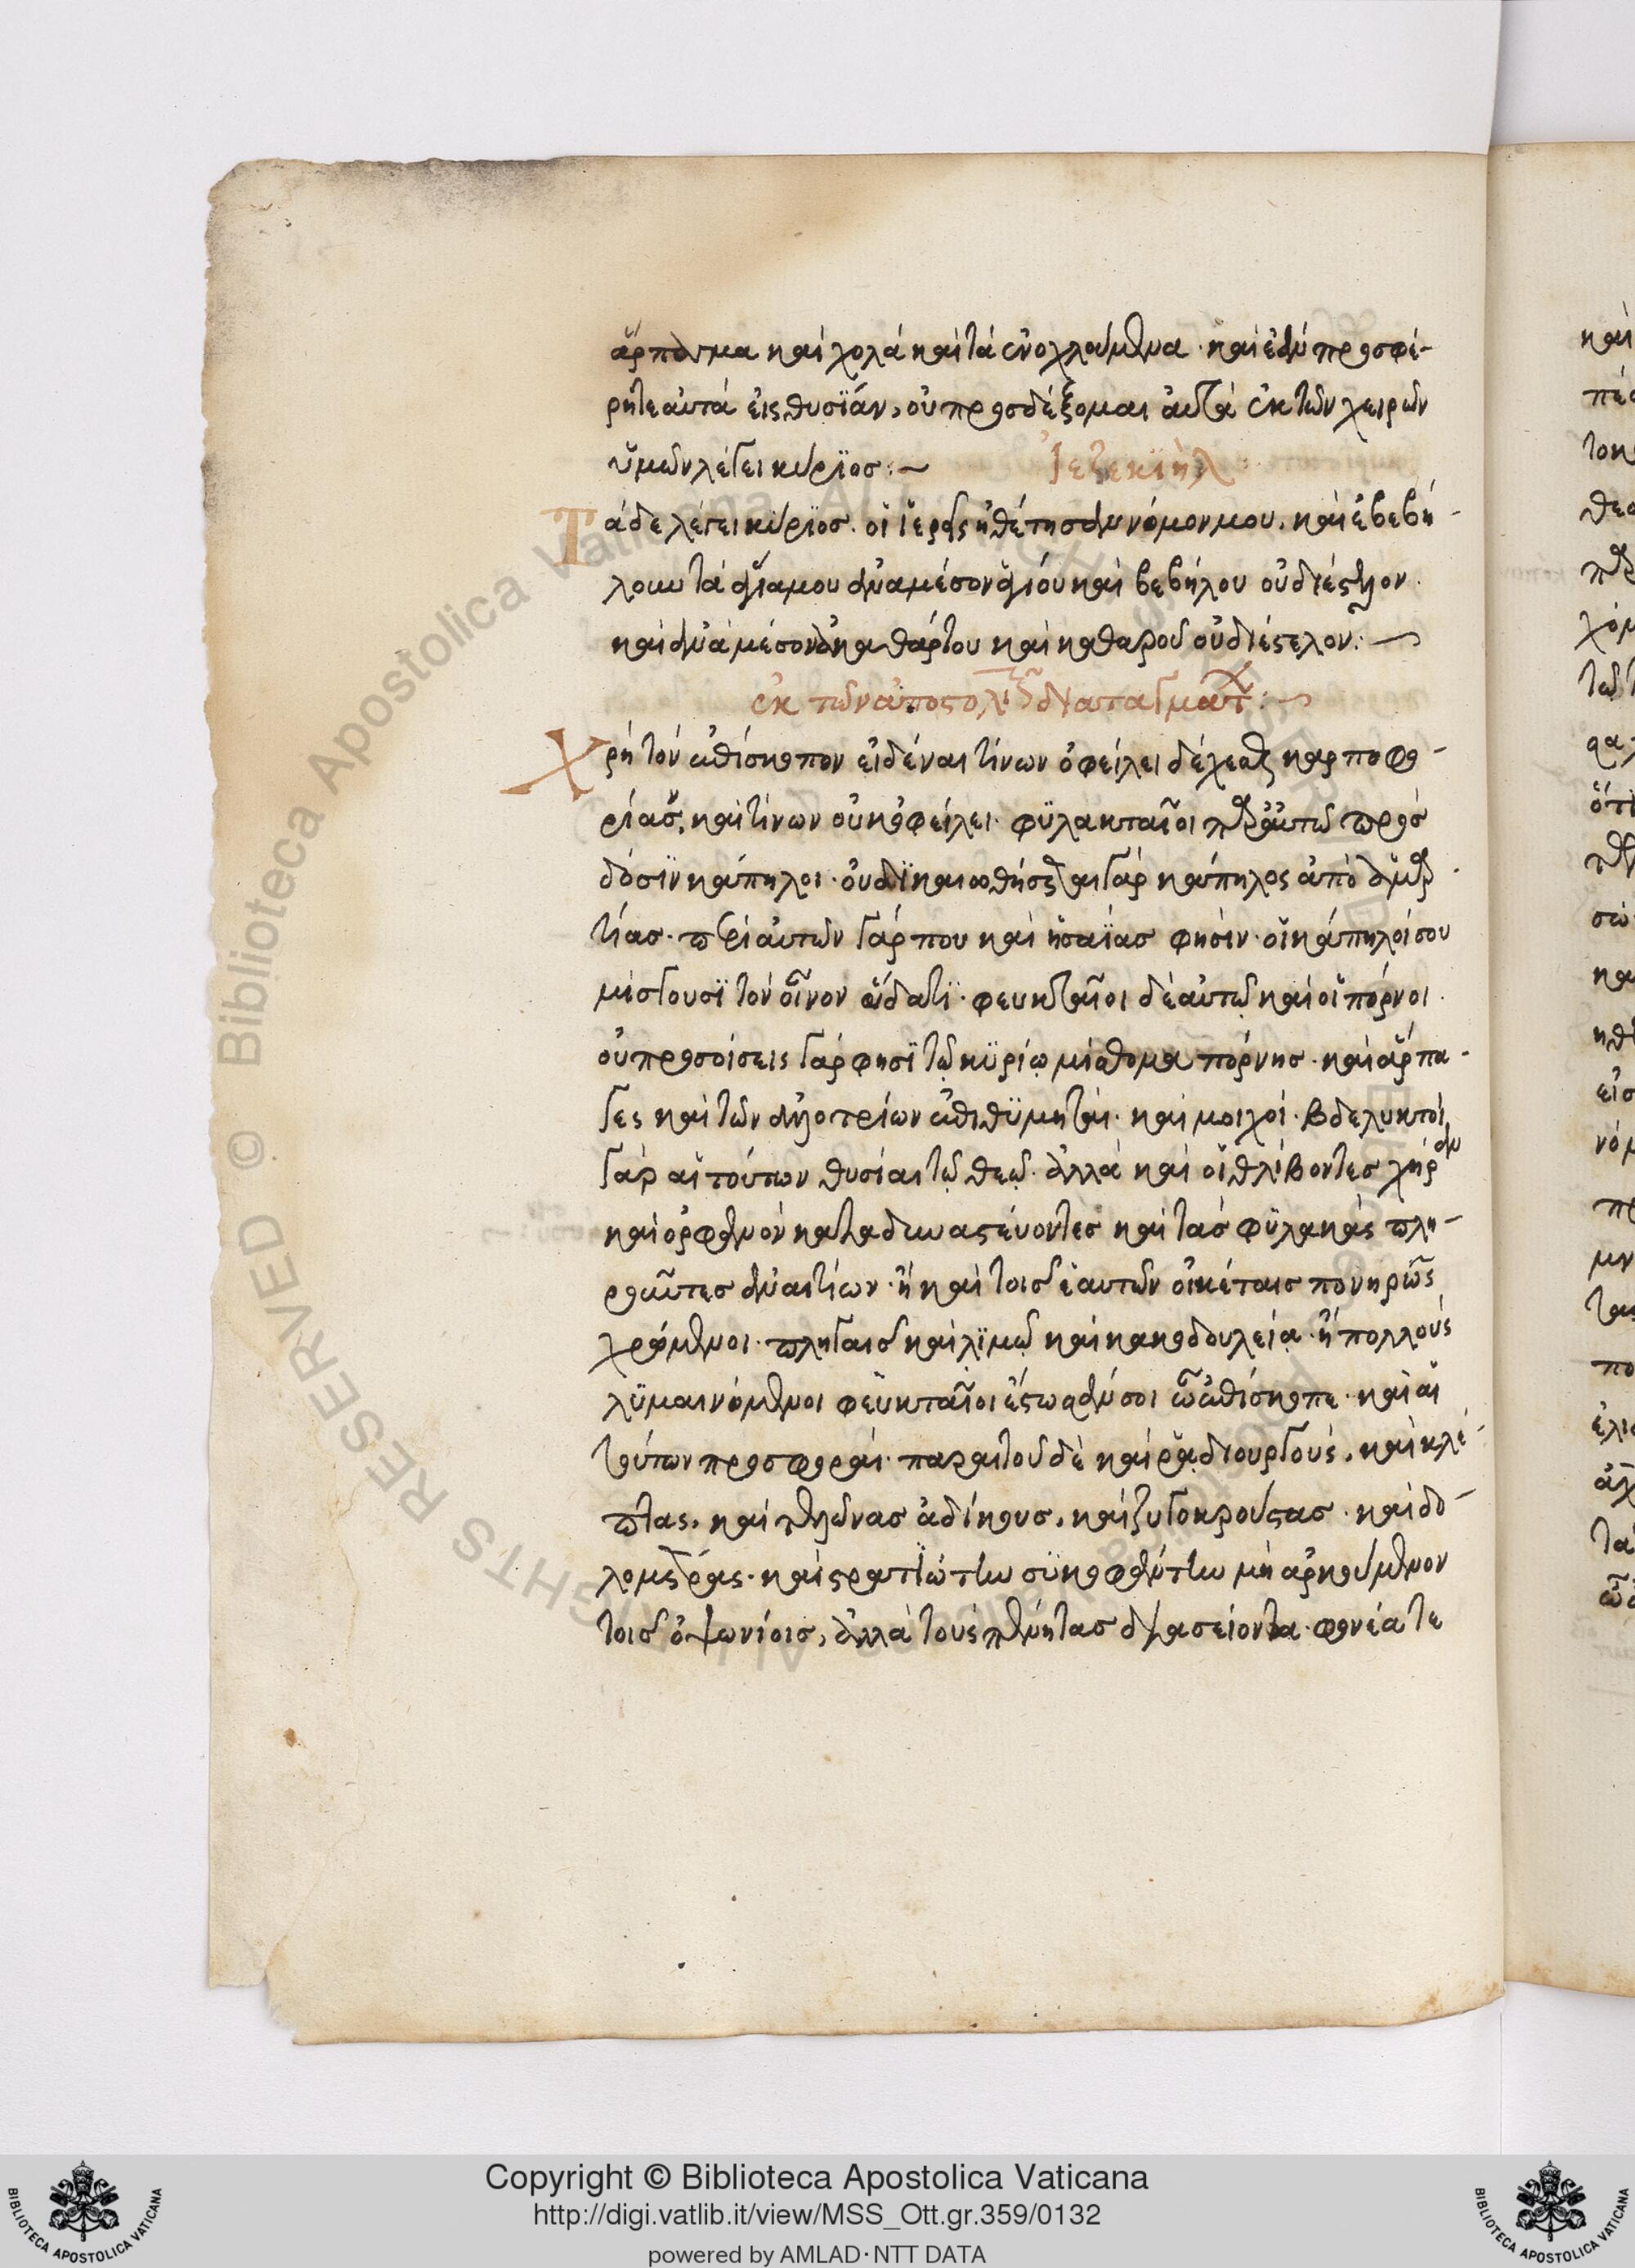 ἅρπαγμα καὶ χολὰ καὶ τὰ ἐνοχλούμενα · καὶ ἐὰν προσφέ-
ρητε αὐτὰ εἰς θυσΐαν, οὐ προσδέξομαι αὐτὰ ἐκ τῶν χειρῶν
ὑμῶν λέγει κύριος :~ Ἰεζεκϊὴλ
Τάδε λέγει κύριος · οἱ ἱερεῖς ἠθέτησαν νόμον μου, καὶ ἐβεβή-
λουν τὰ ἅγιά μου ἀνὰ μέσον ἁγίου καὶ βεβήλου οὐ διέστελον ·
καὶ ἀνὰ μέσον ἀκαθάρτου καὶ καθαροῦ οὐ διέστελον : ~
ἐκ τῶν ἀποστολι διαταγμάτ : ~
Χρὴ τὸν ἐπίσκοπον εἰδέναι τίνων ὀφείλει δέχεσθαι καρποφο-
ρίας, καὶ τίνων οὐκ ὀφείλει · φϋλακταῖοι παρ αὐτῶ πρὸς
δόσϊν κάπηλοι · οὐ δϊκαιωθήσεται γὰρ κάπηλος ἀπὸ ἁμαρ-
τίας · περὶ αὐτῶν γάρ που καὶ ἠσαΐας φησίν · οἱ κάπηλοί σου
μίσγουσϊ τὸν οἶνον ὕδατϊ · φευκταῖοι δὲ αὐτῷ καὶ οἱ πόρνοι ·
οὐ προσοίσεις γάρ φησϊ τῷ κϋρίῳ μίσθομα πόρνης · καὶ ἅρπα-
γες καὶ τῶν ἀλλοτρίων ἐπιθϋμηταὶ · καὶ μοιχοί · βδελυκτοὶ
γὰρ αἱ τούτων θυσίαι τῷ θεῷ · ἀλλὰ καὶ οἱ θλίβοντες χήραν
καὶ ὀρφανὸν καταδυναστεύοντες καὶ τὰς φϋλακὰς πλη-
ροῦντες ἀναιτίων · ἢ καὶ τοῖς ἑαυτῶν οἰκέταις πονηρῶς
χρώμενοι · πληγαῖς καὶ λϊμῷ καὶ κακοδουλείᾳ · ἢ πολλοὺς
λϋμαινόμενοι φευκταῖοι ἔστωσάν σοι ὦ ἐπίσκοπε · καὶ αἱ
τούτων προσφοραὶ · παραιτοῦ δὲ καὶ ῥᾳδιουργοὺς, καὶ κλέ-
πτας, καὶ τελώνας ἀδίκους, καὶ ζυγοκρούστας · καὶ δο-
λομέτρας · καὶ στρατϊώτην σϋκοφάντην μὴ ἀρκούμενον
τοῖς ὀψωνίοις, ἀλλὰ τοὺς πένητας διασείοντα · φονέα τε
Copyright © Biblioteca Apostolica Vaticana
http://digi.vatlib.it/view/MSS_Ott.gr.359/0132
powered by AMLAD·NTT DATA